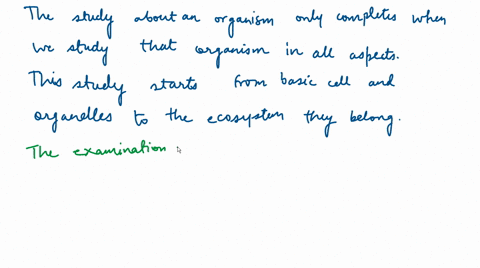 The study about an organism only completes when
we study that organism in all aspects.
This study starts from basic cell and
organelles to the ecosystem they belong.
The examination